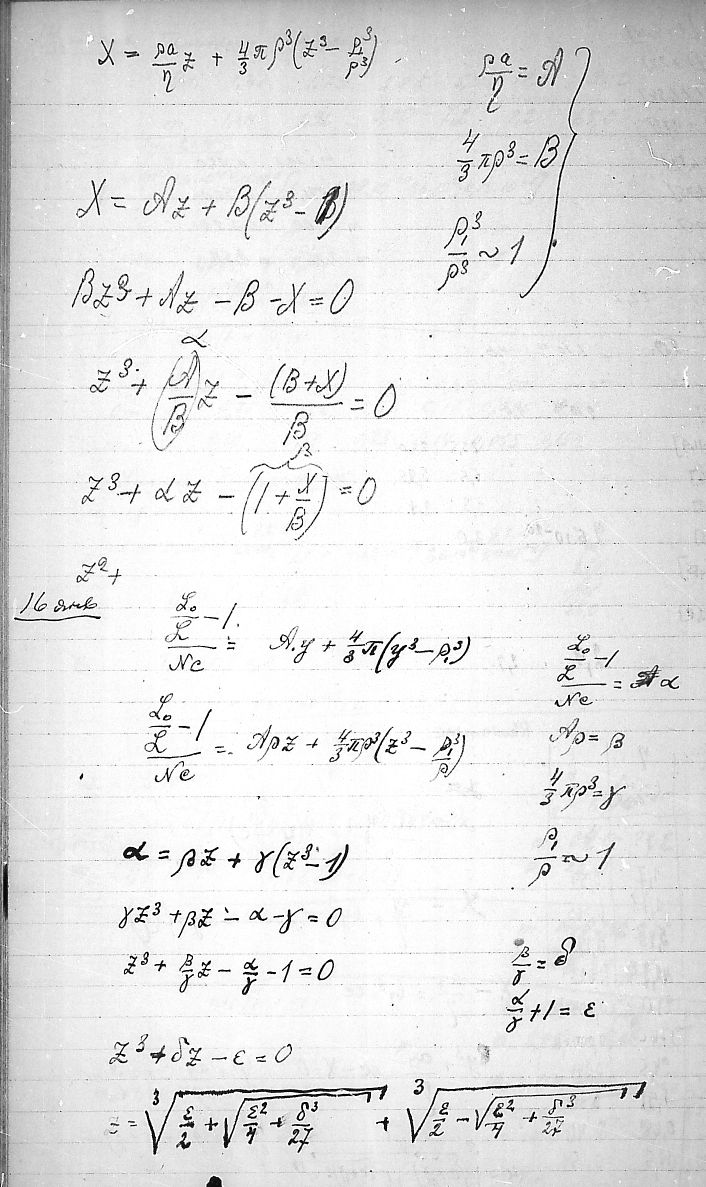 X = ρa/η z + 4/3 πρ³(z³ − ρ₁³/ρ³)
ρa/η = A
4/3 πρ³ = B
ρ₁³/ρ³ ~ 1
X = Az + B(z³ − 1)
Bz³ + Az − B − X = 0
α
z³ + (A/B)z − (B+X)/B = 0
β
z³ + αz − (1 + X/B) = 0
z² +
16 янв
(L₀/L − 1)/Nc = A·y + 4/3 π(y³ − ρ₁³)
(L₀/L − 1)/Nc = α
(L₀/L − 1)/Nc = Aρz + 4/3 πρ³(z³ − ρ₁³/ρ)
Aρ = β
4/3 πρ³ = γ
ρ₁/ρ ~ 1
α = βz + γ(z³ − 1)
γz³ + βz − α − γ = 0
z³ + β/γ z − α/γ − 1 = 0
β/γ = δ
α/γ + 1 = ε
z³ + δz − ε = 0
z = ∛(ε/2 + √(ε²/4 + δ³/27)) + ∛(ε/2 − √(ε²/4 + δ³/27))